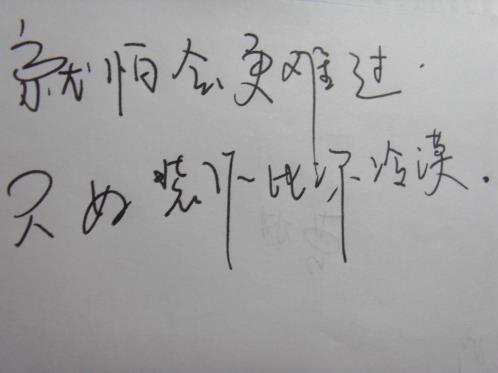 就怕会更难过.
只好装作比你冷漠.